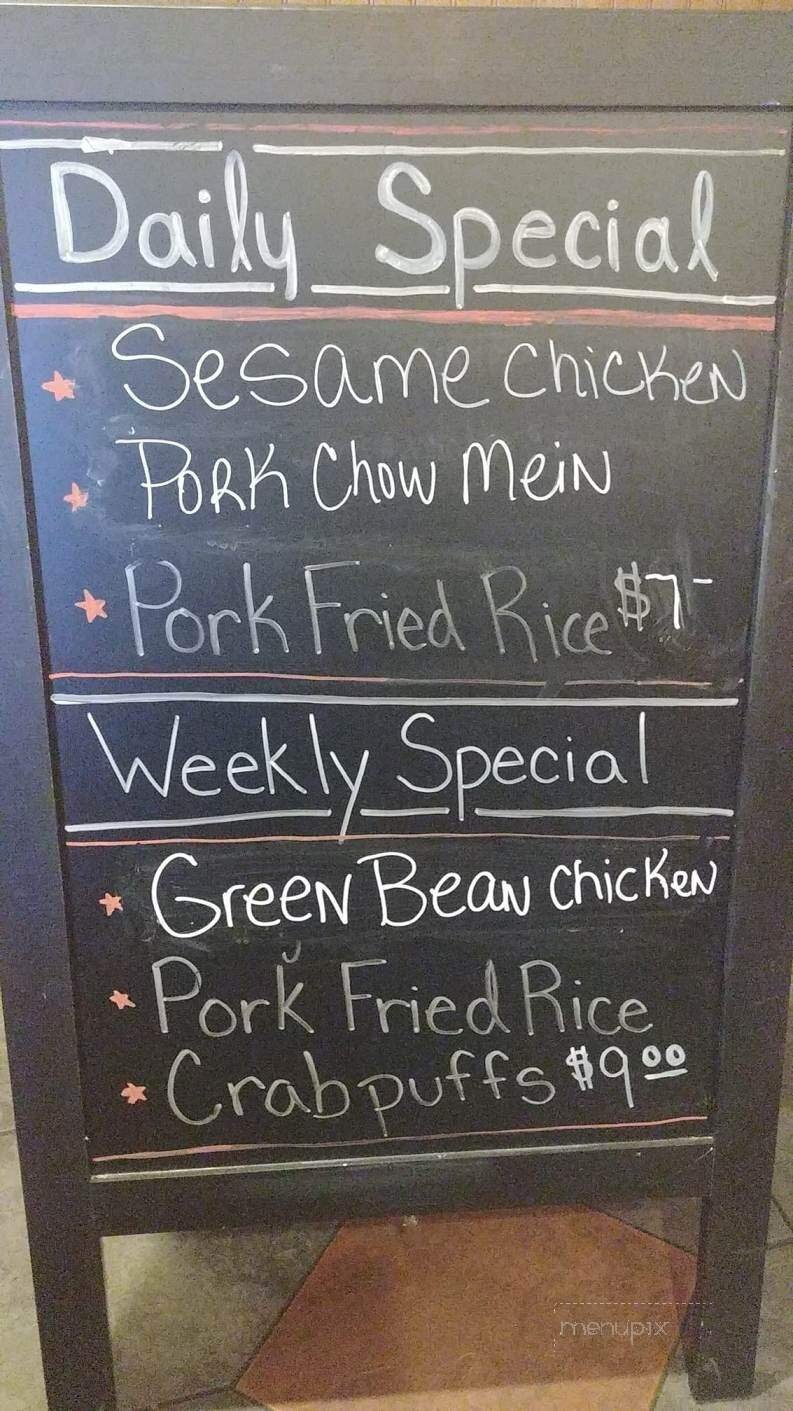 Daily Special
Sesame Chicken
Pork Chow Mein
Pork Fried Rice $7-
Weekly Special
Green Bean Chicken
Pork Fried Rice
Crabpuffs $9.00
menupix